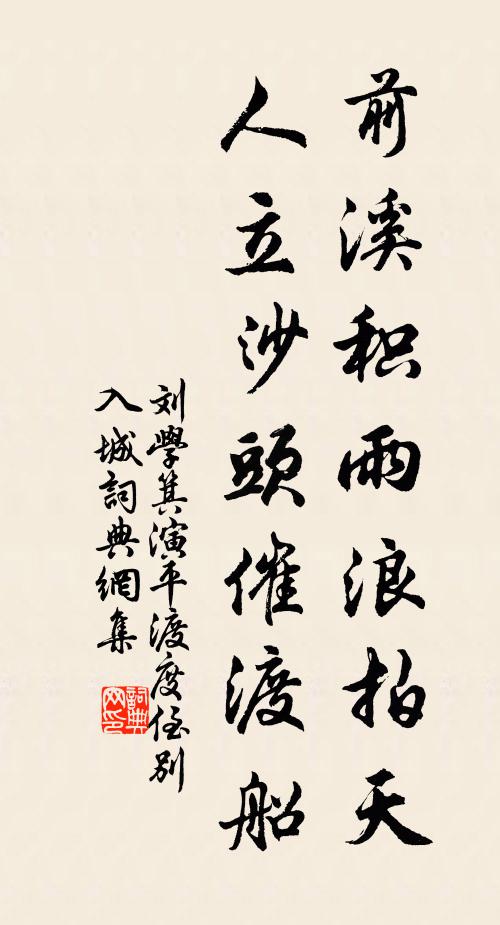 前溪积雨浪拍天
人立沙頭催渡船
刘學箕演平渡度侄别
入城詞典網集
詞典網印